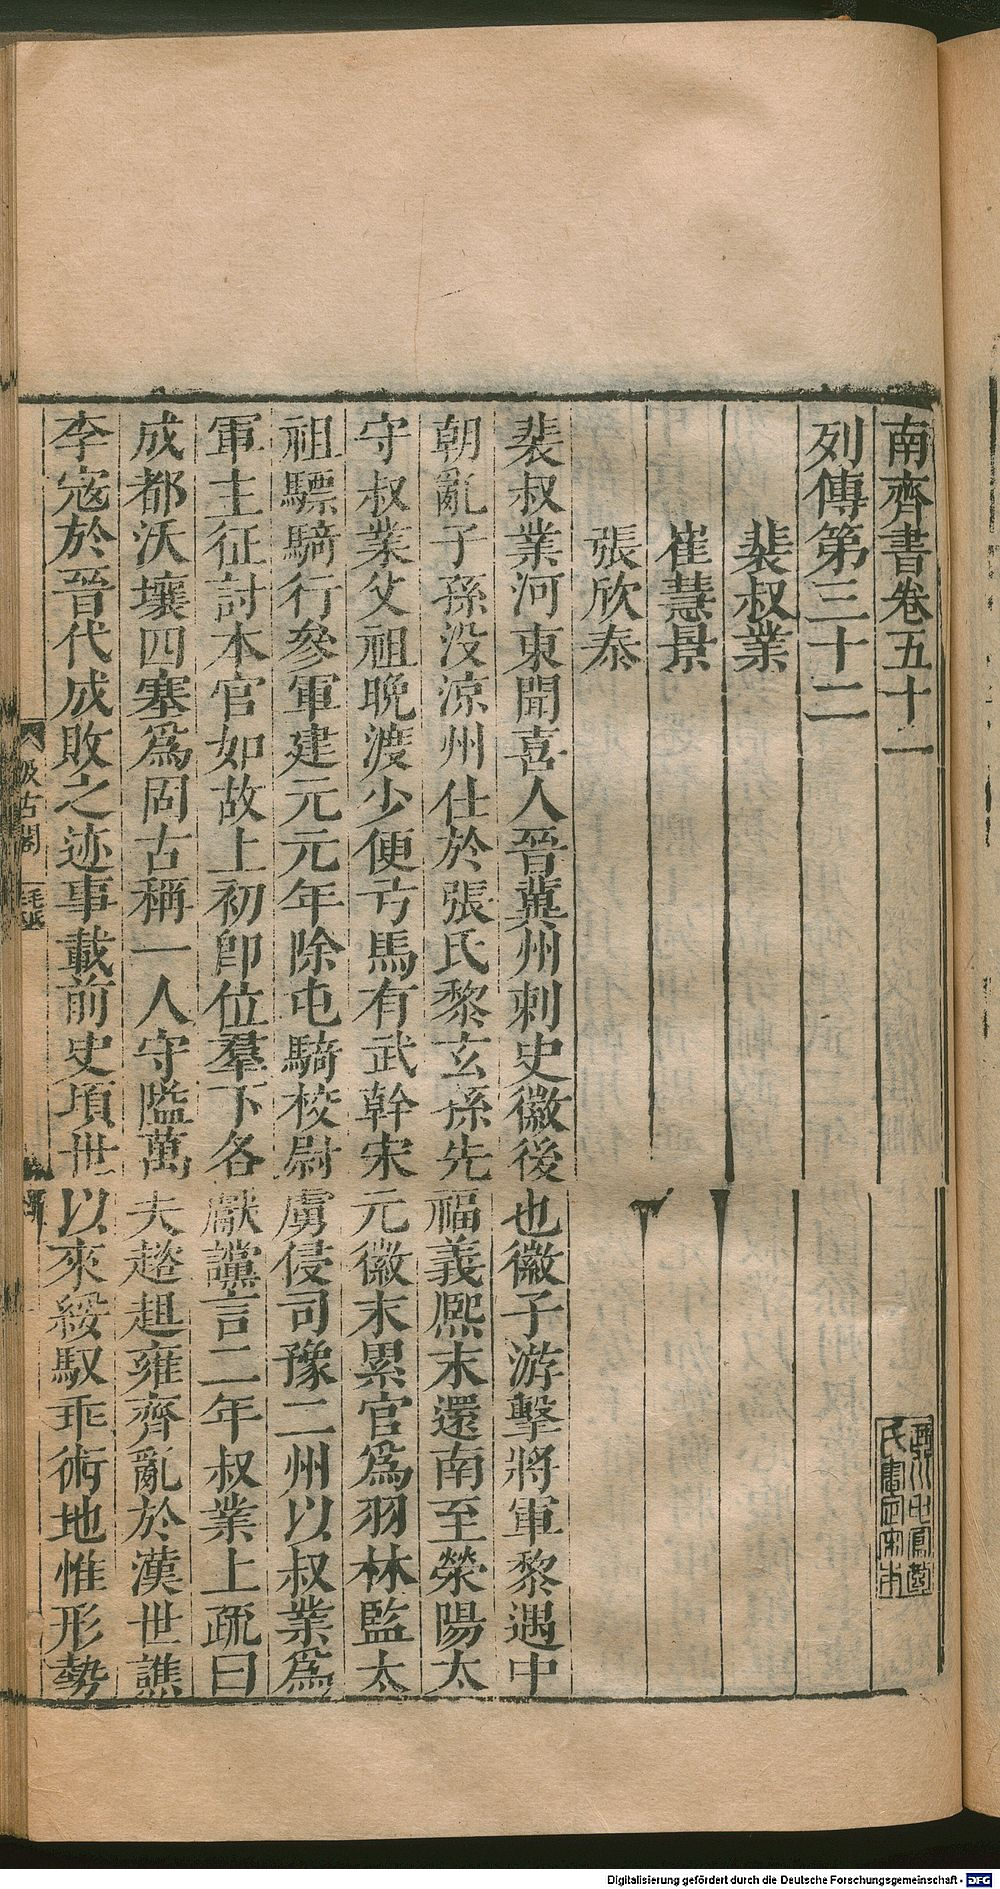 南齊書卷五十一
列傳第三十二
裴叔業
崔慧景
張欣泰
裴叔業河東聞喜人晉冀州刺史徽後也徽子游擊將軍黎遇中
朝亂子孫没涼州仕於張氏黎玄孫先福義熙末還南至滎陽太
守叔業父祖晚渡少便弓馬有武幹宋元徽末累官爲羽林監太
祖驃騎行參軍建元元年除屯騎校尉虜侵司豫二州以叔業爲
軍主征討本官如故上初即位羣下各獻讜言二年叔業上疏曰
成都沃壤四塞爲固古稱一人守隘萬夫趑趄雍齊亂於漢世譙
李寇於晉代成敗之迹事載前史頃世以來綏馭乖術地惟形勢
汲古閣
毛氏
Digitalisierung gefördert durch die Deutsche Forschungsgemeinschaft - DFG